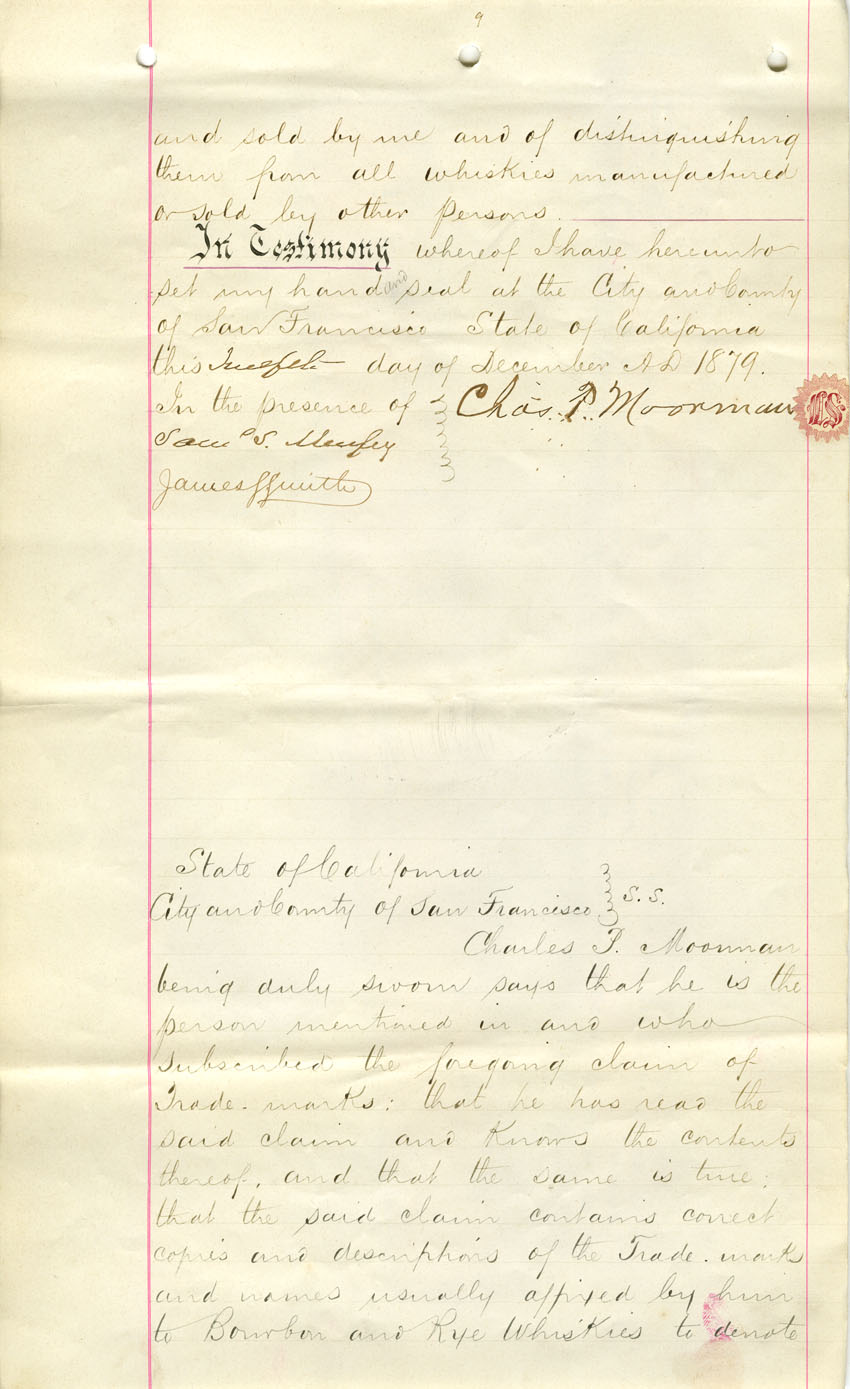 9
and sold by me and of distinguishing
them from all whiskies manufactured
or sold by other persons.
In Testimony whereof I have hereunto
set my hand and seal at the City and County
of San Francisco State of California
this Twelfth day of December A.D 1879.
In the presence of Chas. P. Moorman LS.
Saml S.
James Smith
State of California
City and County of San Francisco S.S.
Charles P. Moorman
being duly sworn says that he is the
person mentioned in and who
subscribed the foregoing claim of
Trade-marks: that he has read the
said claim and Knows the contents
thereof, and that the same is true;
that the said claim contains correct
copies and descriptions of the Trade-marks
and names usually affixed by him
to Bourbon and Rye Whiskies to denote